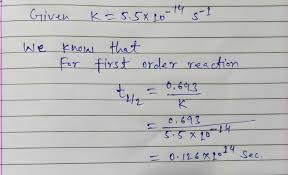 Given K = 5.5 x 10⁻¹⁴ s⁻¹
We know that
For first order reaction
t₁/₂ = 0.693 / K
= 0.693 / 5.5 x 10⁻¹⁴
= 0.126 x 10¹⁴ Sec.